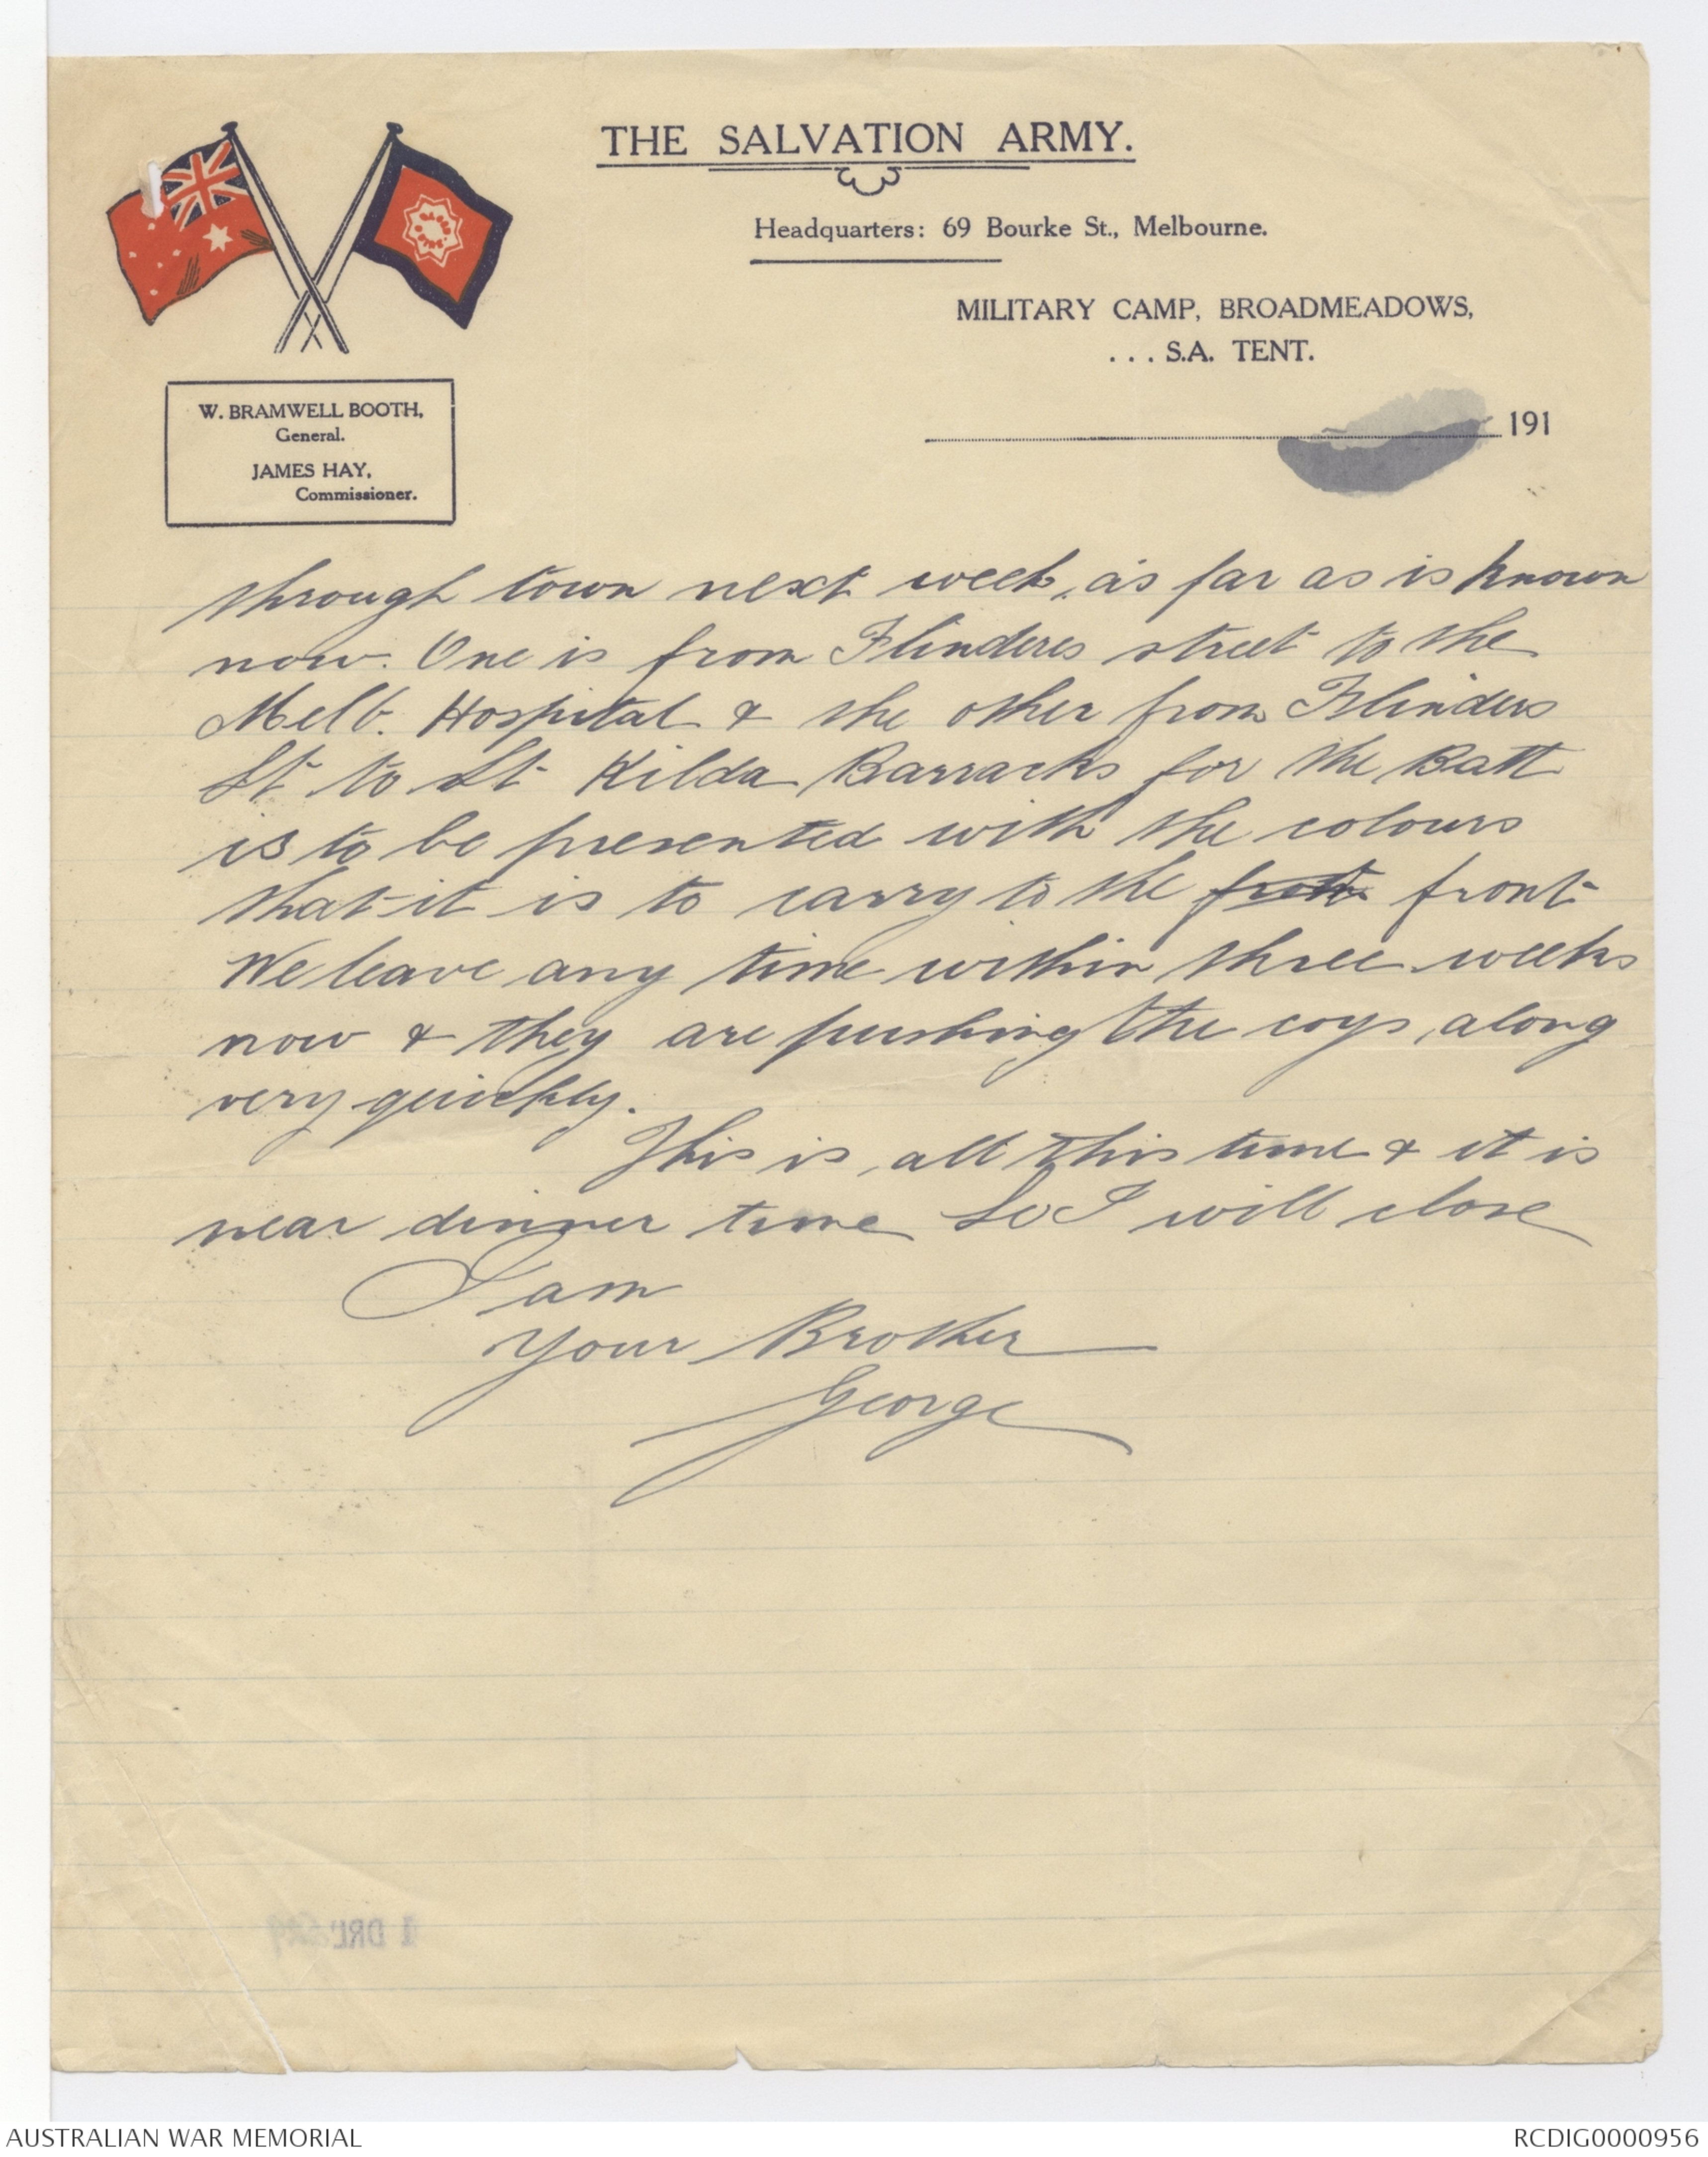 THE SALVATION ARMY.
Headquarters: 69 Bourke St., Melbourne.
MILITARY CAMP, BROADMEADOWS,
. . . S.A. TENT.
191
W. BRAMWELL BOOTH,
General.
JAMES HAY,
Commissioner.
through town next week, as far as is known
now. One is from Flinderes street to the
Melb. Hospital & the other from Flinders
St to St Kilda Barracks for the Batt
is to be presented with the colours
that it is to carry to the front
We leave any time within three weeks
now & they are pushing the coys along
very quickly.
This is all this time & it is
near dinner time so I will close
I am
Your Brother
George
1 DRL
AUSTRALIAN WAR MEMORIAL
RCDIG0000956